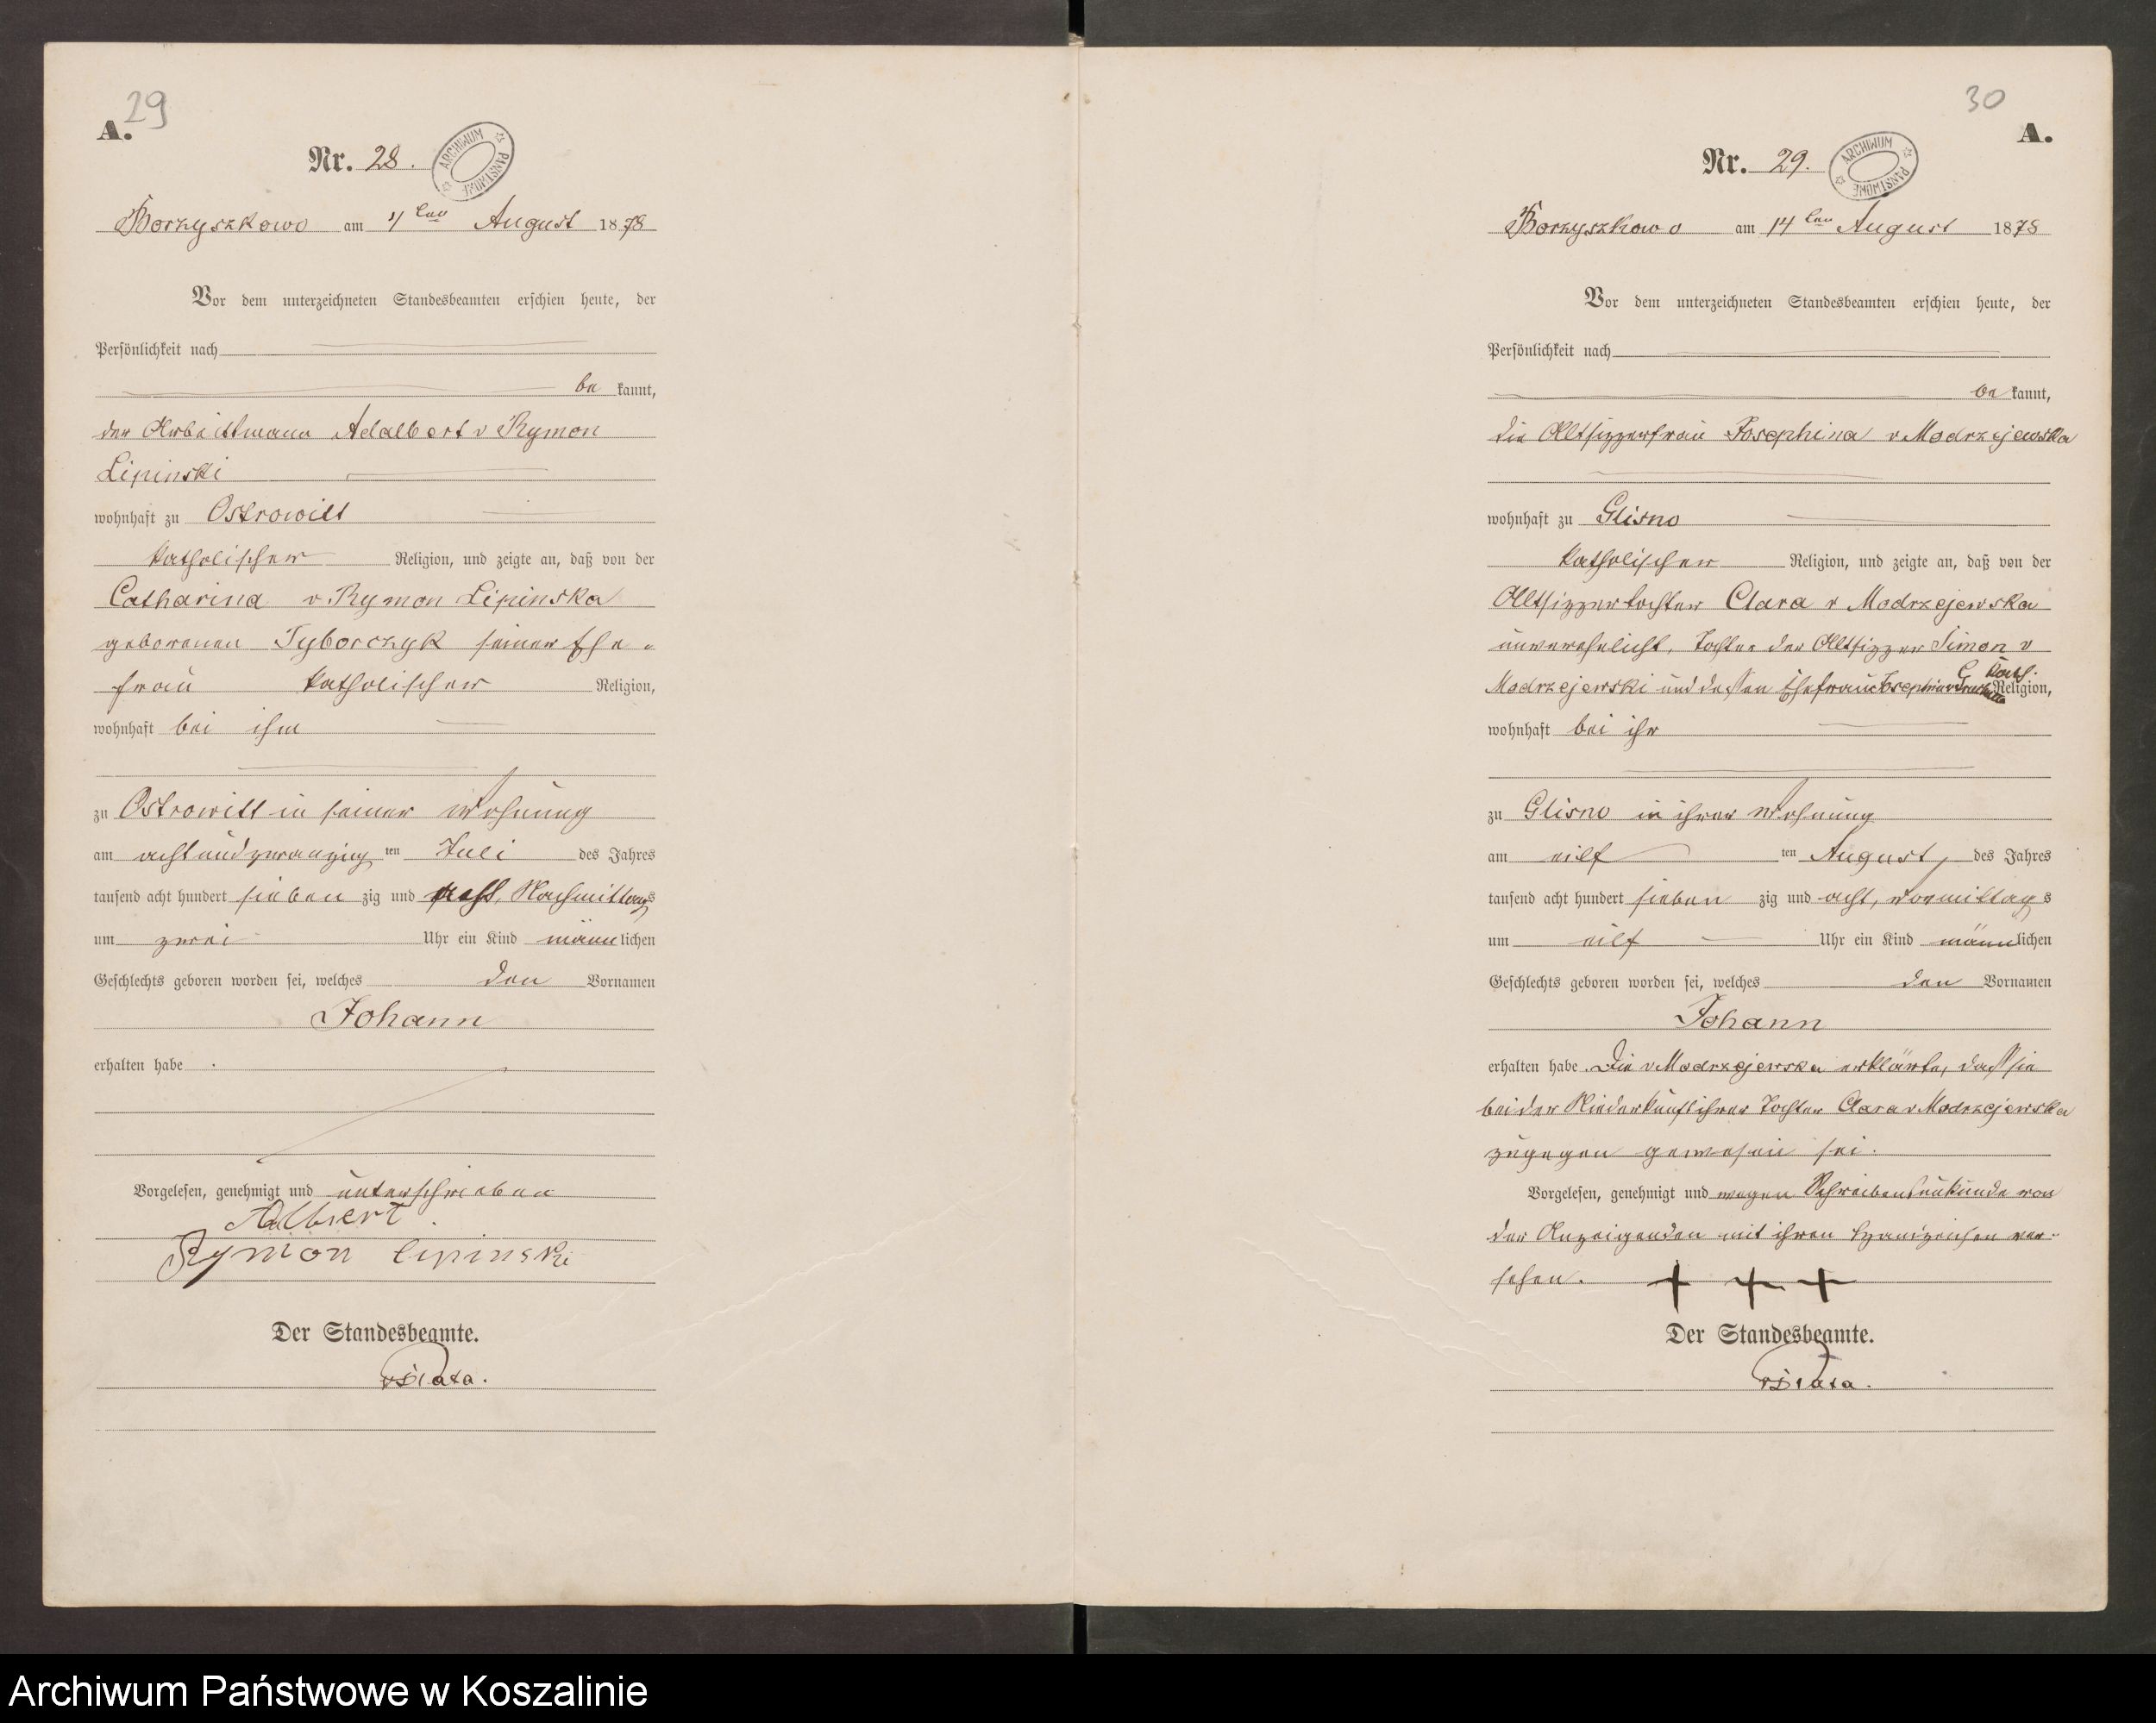 29
A.
Nr. 28.
ARCHIWUM PAŃSTWOWE
Borzyszkowo am ten August 1878
Vor dem unterzeichneten Standesbeamten erschien heute, der
Persönlichkeit nach
be kannt,
der Arbeitsmann Adalbert v Rymon
Lipinski
wohnhaft zu Ostrowitt
katholischer Religion, und zeigte an, daß von der
Catharina v Rymon Lipinska
geborenen Tyborczyk seiner Ehe-
frau katholischer Religion,
wohnhaft bei ihm
zu Ostrowitt in seiner Wohnung
am achtundzwanzig ten Juli des Jahres
tausend acht hundert sieben zig und acht, Nachmittags
um zwei Uhr ein Kind männlichen
Geschlechts geboren worden sei, welches den Vornamen
Johann
erhalten habe.
Vorgelesen, genehmigt und unterschrieben
Albert
Rymon Lipinski
Der Standesbeamte.
30
A.
Nr. 29.
ARCHIWUM PAŃSTWOWE
Borzyszkowo am 14 ten August 1878
Vor dem unterzeichneten Standesbeamten erschien heute, der
Persönlichkeit nach
be kannt,
die Altsitzerfrau Josephina v Modrzejewska
wohnhaft zu Glisno
katholischer Religion, und zeigte an, daß von der
Altsitzertochter Clara v Modrzejewska
unverehelicht, Tochter der Altsitzer Simon v
Modrzejewski und dessen Ehefrau Josephine kath. Religion,
wohnhaft bei ihr
zu Glisno in ihrer Wohnung
am eilf ten August, des Jahres
tausend acht hundert sieben zig und acht, vormittags
um eilf Uhr ein Kind männlichen
Geschlechts geboren worden sei, welches den Vornamen
Johann
erhalten habe. Die v Modrzejewska erklärte, daß sie
bei der Niederkunft ihrer Tochter Clara v Modrzejewska
zugegen gewesen sei.
Vorgelesen, genehmigt und wegen Schreibensunkunde von
der Anzeigenden mit ihren Handzeichen ver-
sehen. + + +
Der Standesbeamte.
Archiwum Państwowe w Koszalinie